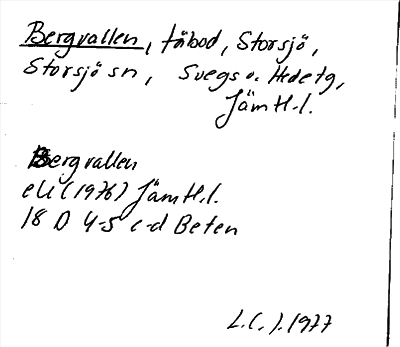 Bergvallen, fäbod, Storsjö,
Storsjö sn, Svegs o. Hede tg,
Jämtl. l.
Bergvallen
ek (1976) Jämtl. l.
18 D 4-5 c-d Beten
L.C.J. 1977